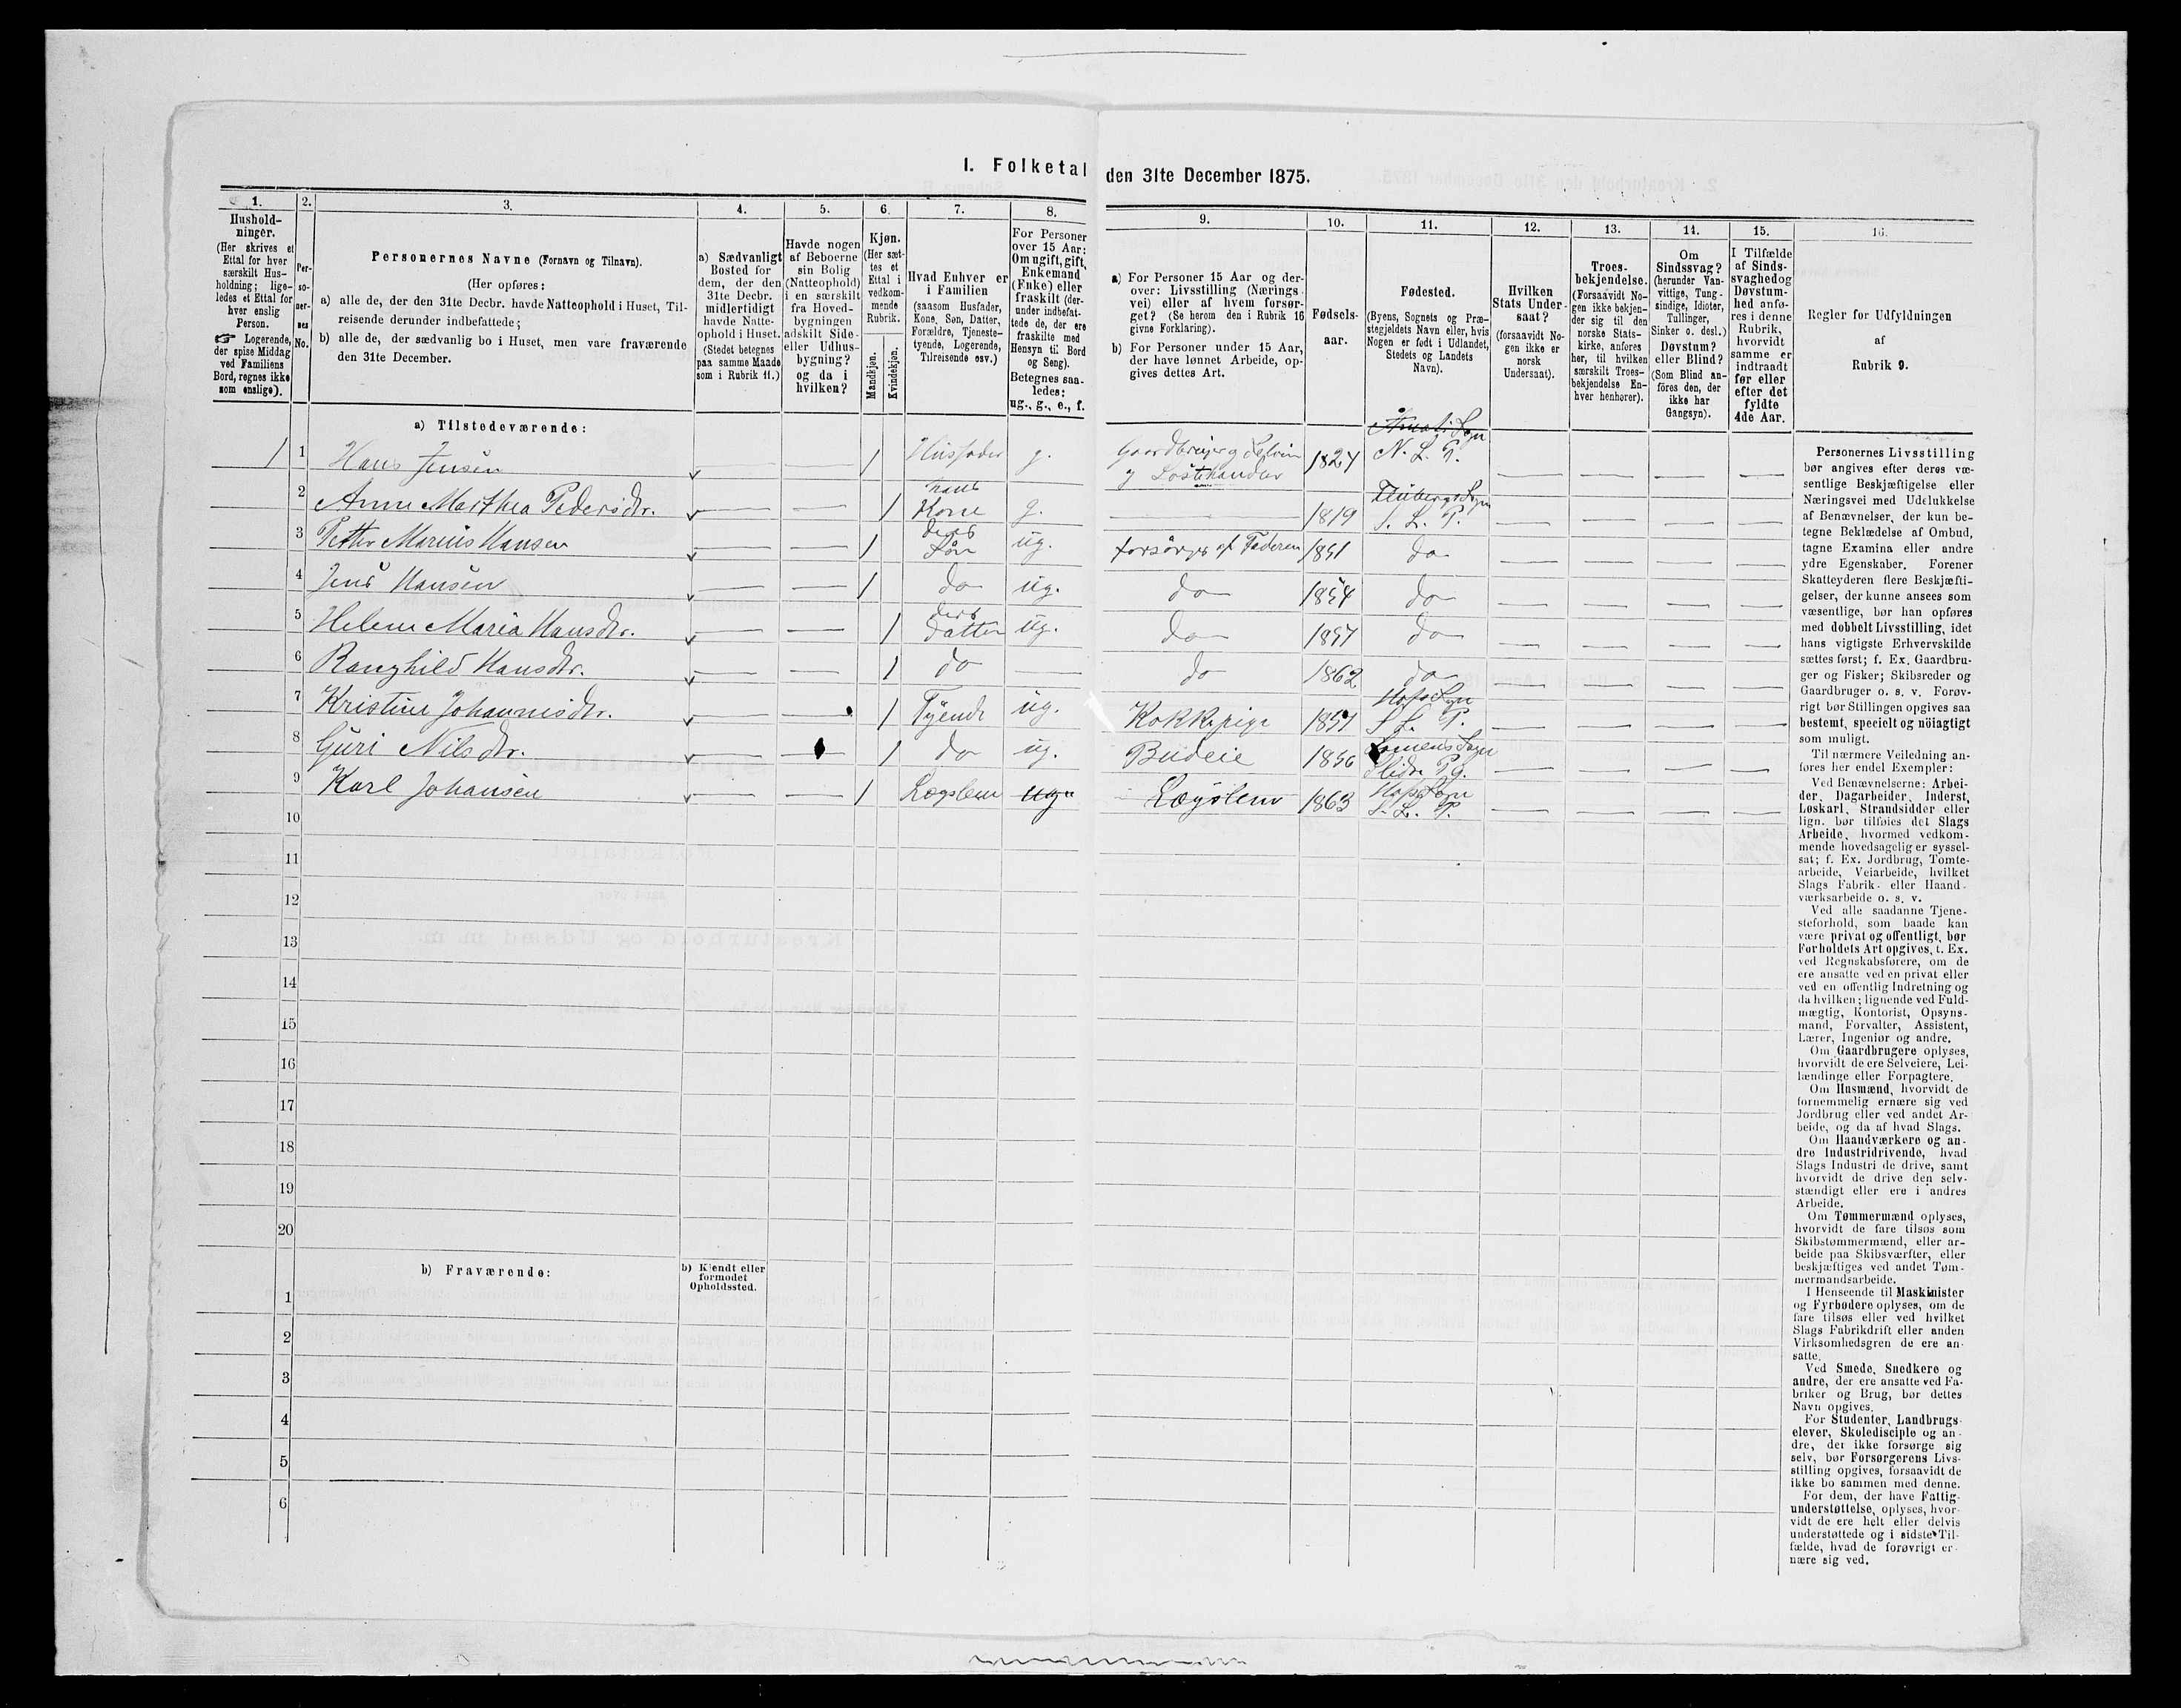 I. Folketal den 31te December 1875.
1. 2. 3. 4. 5. 6. 7. 8. 9. 10. 11. 12. 13. 14. 15. 16.
Hushold-
ninger.
(Her skrives et
Ettal for hver
særskilt Hus-
holdning; lige-
ledes et Ettal for
hver enslig
Person.
☞ Logerende,
der spise Middag
ved Familiens
Bord, regnes ikke
som enslige).
Per-
so-
ner-
nes
No.
Personernes Navne (Fornavn og Tilnavn).
(Her opføres:
a) alle de, der den 31te Decbr. havde Natteophold i Huset, Til-
reisende derunder indbefattede;
b) alle de, der sædvanlig bo i Huset, men vare fraværende
den 31te December.
a) Sædvanligt
Bosted for
dem, der den
31te Decbr.
midlertidigt
havde Natte-
ophold i Huset.
(Stedet betegnes
paa samme Maade
som i Rubrik 11.)
Havde nogen
af Beboerne
sin Bolig
(Natteophold)
i en særskilt
fra Hoved-
bygningen
adskilt Side-
eller Udhus-
bygning?
og da i
hvilken?
Kjøn.
(Her sæt-
tes et
Ettal i
vedkom-
mende
Rubrik.
Mandkjøn.
Kvindekjøn.
Hvad Enhver er
i Familien
(saasom Husfader,
Kone, Søn, Datter,
Forældre, Tjeneste-
tyende, Logerende,
Tilreisende osv.)
For Personer
over 15 Aar:
Om ugift, gift,
Enkemand
(Enke) eller
fraskilt (der-
under indbefat-
tede de, der ere
fraskilte med
Hensyn til Bord
og Seng).
Betegnes saa-
ledes:
ug., g., e., f.
a) For Personer 15 Aar og der-
over: Livsstilling (Nærings-
vei) eller af hvem forsør-
get? (Se herom den i Rubrik 16
givne Forklaring).
b) For Personer under 15 Aar,
der have lønnet Arbeide, op-
gives dettes Art.
Fødsels-
aar.
Fødested.
(Byens, Sognets og Præ-
stegjeldets Navn eller, hvis
Nogen er født i Udlandet,
Stedets og Landets
Navn).
Hvilken
Stats Under-
saat?
(forsaavidt No-
gen ikke er
norsk
Undersaat).
Troes-
bekjendelse.
(Forsaavidt No-
gen ikke bekjen-
der sig til den
norske Stats-
kirke, anføres
her, til hvilken
særskilt Troes-
bekjendelse En-
hver henhører).
Om
Sindssvag?
(herunder Van-
vittige, Tung-
sindige, Idioter,
Tullinger,
Sinker o. desl.)
Døvstum?
eller Blind?
(Som Blind an-
føres den, der
ikke har
Gangsyn).
I Tilfælde
af Sinds-
svaghed og
Døvstum-
hed anfø-
res i denne
Rubrik,
hvorvidt
samme er
indtraadt
før eller
efter det
fyldte
4de Aar.
Regler for Udfyldningen
af
Rubrik 9.
a) Tilstedeværende:
1 1 Hans Jensen 1 Husfader g. Gaardbruger og Selveier
og Løsthandler 1824 N. L. P.
2 Anne Marthea Pedersdtr. 1 hans Kone g. 1819 S. L. P.
3 Petter Marius Hansen 1 deres Søn ug. forsørges af Faderen 1851 do
4 Jens Hansen 1 do ug. do 1854 do
5 Helene Maria Hansdtr. 1 deres Datter ug. do 1857 do
6 Ranghild Hansdtr. 1 do do 1862 do
7 Kristine Johannesdtr. 1 Tyende ug. Kokkepige 1851 Hofs Sogn S. L. P.
8 Guri Nilsdtr. 1 do ug. Budeie 1856 Lomens Sogn Slidre Pg.
9 Karl Johansen 1 Lægslem Lægslem 1863 Hofs Sogn S. L. P.
10
11
12
13
14
15
16
17
18
19
20
b) Fraværende: b) Kjendt eller
formodet
Opholdssted.
1
2
3
4
5
6
Personernes Livsstilling
bør angives efter deres væ-
sentlige Beskjæftigelse eller
Næringsvei med Udelukkelse
af Benævnelser, der kun be-
tegne Beklædelse af Ombud,
tagne Examina eller andre
ydre Egenskaber. Forener
Skatteyderen flere Beskjæfti-
gelser, der kunne ansees som
væsentlige, bør han opføres
med dobbelt Livsstilling, idet
hans vigtigste Erhvervskilde
sættes først; f. Ex. Gaardbru-
ger og Fisker; Skibsreder og
Gaardbruger o. s. v. Forøv-
rigt bør Stillingen opgives saa
bestemt, specielt og nöiagtigt
som muligt.
Til nærmere Veiledning an-
føres her endel Exempler:
Ved Benævnelserne: Arbei-
der, Dagarbeider, Inderst,
Løskarl, Strandsidder eller
lign. bør tilføies det Slags
Arbeide, hvormed vedkom-
mende hovedsagelig er syssel-
sat; f. Ex. Jordbrug, Tomte-
arbeide, Veiarbeide, hvilket
Slags Fabrik- eller Haand-
værksarbeide o. s. v.
Ved alle saadanne Tjene-
steforhold, som baade kan
være privat og offentligt, bør
Forholdets Art opgives, t. Ex.
ved Regnskabsførere, om de
ere ansatte ved en privat eller
ved en offentlig Indretning og
da hvilken; lignende ved Fuld-
mægtig, Kontorist, Opsyns-
mand, Forvalter, Assistent,
Lærer, Ingeniør og andre.
Om Gaardbrugere oplyses,
hvorvidt de ere Selveiere, Lei-
lændinge eller Forpagtere.
Om Husmænd, hvorvidt de
fornemmelig ernære sig ved
Jordbrug eller ved andet Ar-
beide, og da af hvad Slags.
Om Haandværkere og an-
dre Industridrivende, hvad
Slags Industri de drive, samt
hvorvidt de drive den selv-
stændigt eller ere i andres
Arbeide.
Om Tømmermænd oplyses,
hvorvidt de fare tilsøs som
Skibstømmermænd, eller ar-
beide paa Skibsværfter, eller
beskjæftiges ved andet Tøm-
mermandsarbeide.
I Henseende til Maskinister
og Fyrbødere oplyses, om de
fare tilsøs eller ved hvilket
Slags Fabrikdrift eller anden
Virksomhedsgren de ere an-
satte.
Ved Smede, Snedkere og
andre, der ere ansatte ved Fa-
briker og Brug, bør dettes
Navn opgives.
For Studenter, Landbrugs-
elever, Skoledisciple og an-
dre, der ikke forsørge sig
selv, bør Forsørgerens Livs-
stilling opgives, forsaavidt de
ikke bo sammen med denne.
For dem, der have Fattig-
understøttelse, oplyses, hvor-
vidt de ere helt eller delvis
understøttede og i sidste Til-
fælde, hvad de forøvrigt er-
nære sig ved.